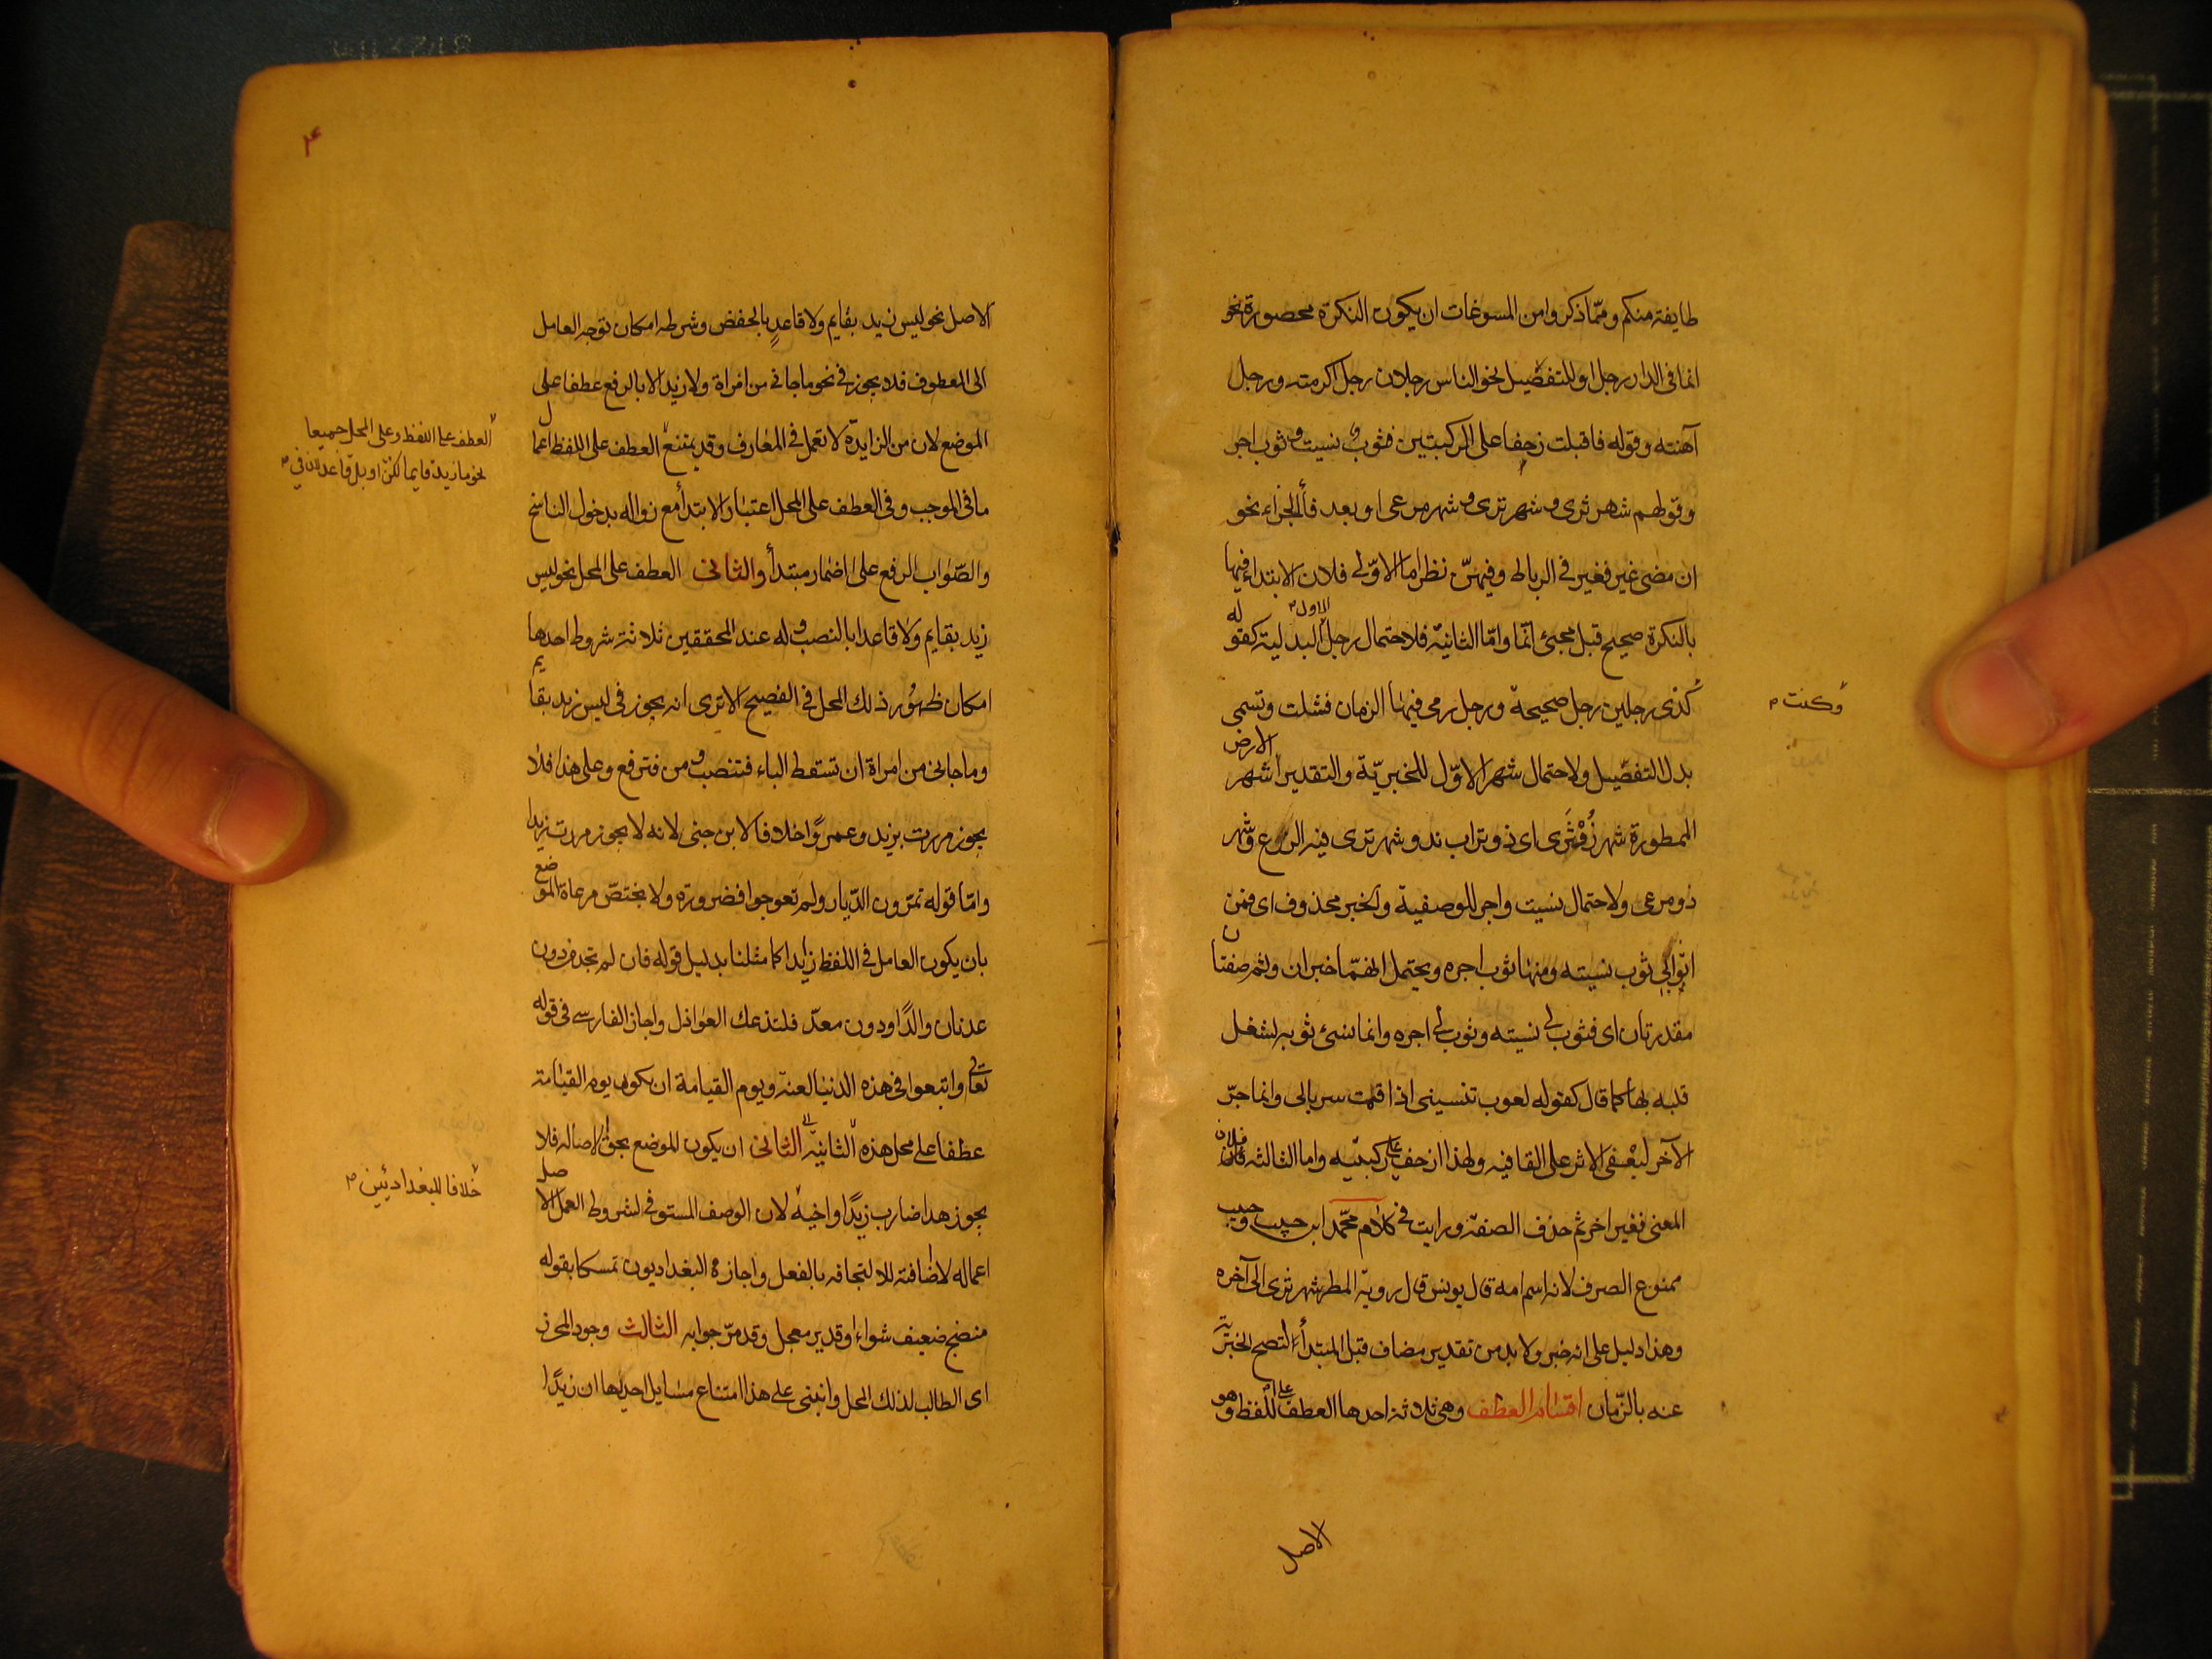 طايفة منكم وممّا ذكروا من المسوغات ان يكون النكرة محصورة نحو
انما فى الدار رجل او للتفضيل نحو الناس رجلان رجل اكرمته ورجل
آهنته وقوله فاقبلت زحفا على الركبتين فثوب نسيت وثوب اجر
وقولهم شهر ثرى وشهر ترى وشهر مرعى او بعد فأ الجزاء نحو
ان مضى عير فعير فى الرباط وفيهنّ نظر اما الاولى فلان الابتداء فيها
بالنكرة صحيح قبل مجئ انّما وامّا الثانيّة فلاحتمال رجل الاول البدلية كقوله
كذى رجلين رجل صحيحة ورجل رمى فيها الزمان فشلت وتسمى
وكنت
بدل التفصيل ولاحتمال شهر الاوّل للخبريّة والتقدير اشهر الارض
الممطورة شهر ذو ثرى اى ذو تراب ند وشهر ترى فيه الزرع وشهر
ذو مرعى ولاحتمال نسيت واجر للوصفية والخبر محذوف اى فمن
اثوابى ثوب نسيته ومنها ثوب اجره ويحتمل انهما خبران وثم صفتان
مقدرتان اى فثوب لى نسيته وثوب لى اجره وانما نسى ثوبه لشغل
قلبه بها كما قال كقوله لعوب تنسينى اذا قمت سربالى وانما جرّ
الآخر ليعفى الاثر على القافه ولهذا زحف على ركبتيه واما الثالثه فلان
المعنى فعير اخر ثم حذف الصفة ورايت فى كلام محمّد ابن حبيب وحبيب
ممنوع الصرف لانه اسم امه قال يونس قال رويه المطر شهر ثرى الى آخره
وهذا دليل على انه خبر ولا بد من تقدير مضاف قبل المبتدأ لتصح الخبرية
عنه بالزّمان اقسام العطف وهى ثلاثة احدها العطف على اللفظ وهو
الاصل
۴
الاصل نحو ليس زيد بقايم ولا قاعدٍ بالخفض وشرطه امكان توجه العامل
الى المعطوف فلا يجوز فى نحو ما جانى من امراة ولا زيد الا بالرفع عطفا على
الموضع لان من الزايدة لا تعمل فى المعارف وقد يمتنع العطف على اللفظ اعمال
العطف على اللفظ وعلى المحل جميعا
نحو ما زيد قايما لكن او بل قاعد لان فى
ما فى الموجب وفى العطف على المحل اعتبار الابتدأ مع زواله بدخول الناسخ
والصّواب الرفع على اضمار مبتدأ والثانى العطف على المحل نحو ليس
زيد بقايم ولا قاعدا بالنصب وله عند المحققين ثلاثة شروط احدها
امكان ظهور ذلك المحل فى الفصيح الا ترى انه يجوز فى ليس زيد بقايم
وما جانى من امراة ان تسقط الباء فتنصب ومن فترفع وعلى هذا فلا
يجوز مررت بزيد وعمروًا خلافا لابن جنى لانه لا يجوز مررت زيدا
وامّا قوله تمرّون الدّيار ولم تعوجوا فضرورة ولا يختصّ مرعاة الموضع
بان يكون العامل فى اللفظ زايدا كما مثلنا بدليل قوله فان لم تجد من دون
عدنان والدًا ودون معدّ فلتذعك العواذل واجاز الفارسى فى قوله
تعالى واتبعوا فى هذه الدنيا لعنة ويوم القيامة ان يكون يوم القيامة
عطفا على محل هذه الثانية الثانى ان يكون الموضع بحق الاصاله فلا
يجوز هذا ضارب زيدًا واخيه لان الوصف المستوفى لشروط العمل الاصل
خلافا للبغداديّين
اعماله لا اضافته لالتحاقه بالفعل واجازه البغداديون تمسكا بقوله
منضج ضعيف شواء او قدير معجل وقد مرّ جوابه الثالث وجود المحرز
اى الطالب لذلك المحل وانبنى على هذا امتناع مسايل احديها ان زيدًا